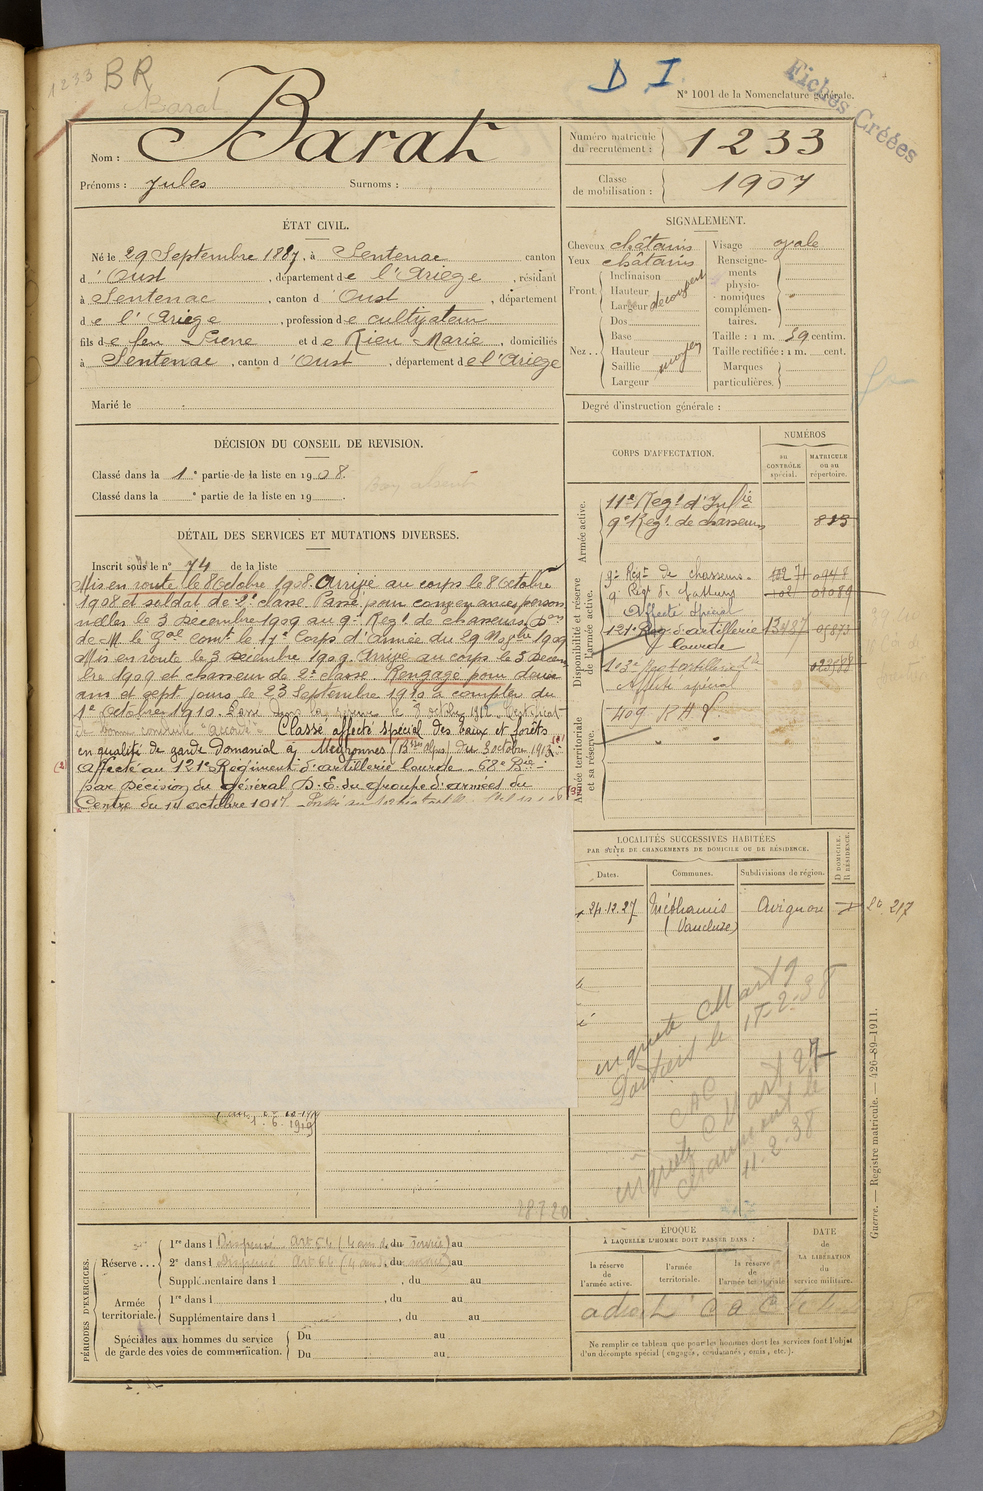 1233 BR
Barat
D I.
Fiches Créées
N° 1001 de la Nomenclature générale.
Nom : Barat
Prénoms : Jules Surnoms :
Numéro matricule du recrutement : 1233
Classe de mobilisation : 1907
ÉTAT CIVIL.
Né le 29 Septembre 1887, à Sentenac canton
d'Oust, département de l'Ariège, résidant
à Sentenac, canton d'Oust, département
de l'Ariège, profession de cultivateur
fils de feu Pierre et de Rieu Marie, domiciliés
à Sentenac, canton d'Oust, département de l'Ariège
Marié le
SIGNALEMENT.
Cheveux châtains
Yeux châtains
Front. Inclinaison
Hauteur
Largeur découvert
Nez.. Dos
Base
Hauteur moyen
Saillie
Largeur
Visage ovale
Renseignements physionomiques complémentaires.
Taille : 1 m. 59 centim.
Taille rectifiée : 1 m. cent.
Marques particulières.
Degré d'instruction générale :
DÉCISION DU CONSEIL DE REVISION.
Classé dans la 1e partie de la liste en 1908.
Classé dans la e partie de la liste en 19
Bon absent
DÉTAIL DES SERVICES ET MUTATIONS DIVERSES.
Inscrit sous le n° 74 de la liste
Mis en route le 8 Octobre 1908. Arrivé au corps le 8 Octobre
1908 et soldat de 2e classe. Passé pour convenances person
nelles le 3 décembre 1909 au 9e Regt de chasseurs Don
de M. le Gal comt le 17e Corps d'Armée du 29 Nobre 1909
Mis en route le 3 décembre 1909. Arrivé au corps le 3 Décem
bre 1909 et chasseur de 2e classe. Rengagé pour deux
ans et sept jours le 23 Septembre 1910 à compter du
1er Octobre 1910. Passé dans la réserve le 8 octobre 1912. Certificat
de bonne conduite "accordé". Classé affecté spécial des Eaux et forêts
en qualité de garde Domanial à Meyronnes (Bses Alpes) du 3 octobre 1913
Affecté au 121e Régiment d'artillerie lourde - 68e Bie -
par Décision du Général D. E. du groupe d'armées du
Centre du 14 octobre 1917.
1.6.1919
28720
CORPS D'AFFECTATION.
NUMÉROS
AU CONTRÔLE spécial.
MATRICULE ou au répertoire.
Armée active.
11e Regt d'Infrie
9e Regt de chasseurs 823
Disponibilité et réserve de l'armée active.
9e Regt de chasseurs
Affecté spécial
121e Reg d'artillerie lourde
Affecté spécial
Armée territoriale et sa réserve.
409 R A L
LOCALITÉS SUCCESSIVES HABITÉES
PAR SUITE DE CHANGEMENTS DE DOMICILE OU DE RÉSIDENCE.
Dates. Communes. Subdivisions de région. D DOMICILE. R RÉSIDENCE.
24.12.27 Méthamis (Vaucluse) Avignon
217
enquête C Mart 9
Poitiers le 17-2-38
CAC
enquête C Mart 27
11-2-38
Guerre. — Registre matricule. — 420-89-1911.
PÉRIODES D'EXERCICES.
Réserve... 1re dans l Dispensé Art 54 (4 ans de service) du au
2e dans l Dispensé Art 54 (4 ans de service) du au
Supplémentaire dans l , du au
Armée territoriale. 1re dans l , du au
Supplémentaire dans l , du au
Spéciales aux hommes du service de garde des voies de communication. Du au
Du au
ÉPOQUE
À LAQUELLE L'HOMME DOIT PASSER DANS :
la réserve de l'armée active.
l'armée territoriale.
la réserve de l'armée territoriale
DATE de LA LIBÉRATION du service militaire.
Ne remplir ce tableau que pour les hommes dont les services font l'objet
d'un décompte spécial (engagés, condamnés, omis, etc.).